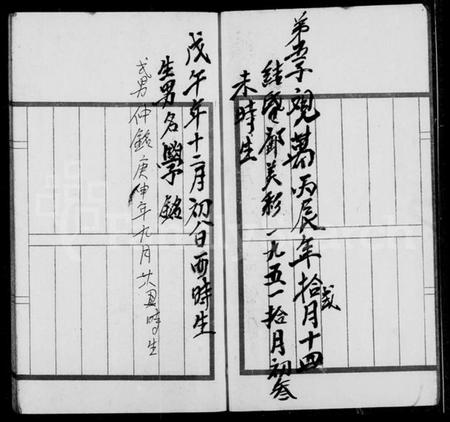 弟五子觀萬丙辰年拾弍月十四
未時生
結婚鄺美彩一九五一拾月初叁
戊午年十二月初八日酉時生
生男名學銘
弍男仲銘庚申年九月廿四丑時生